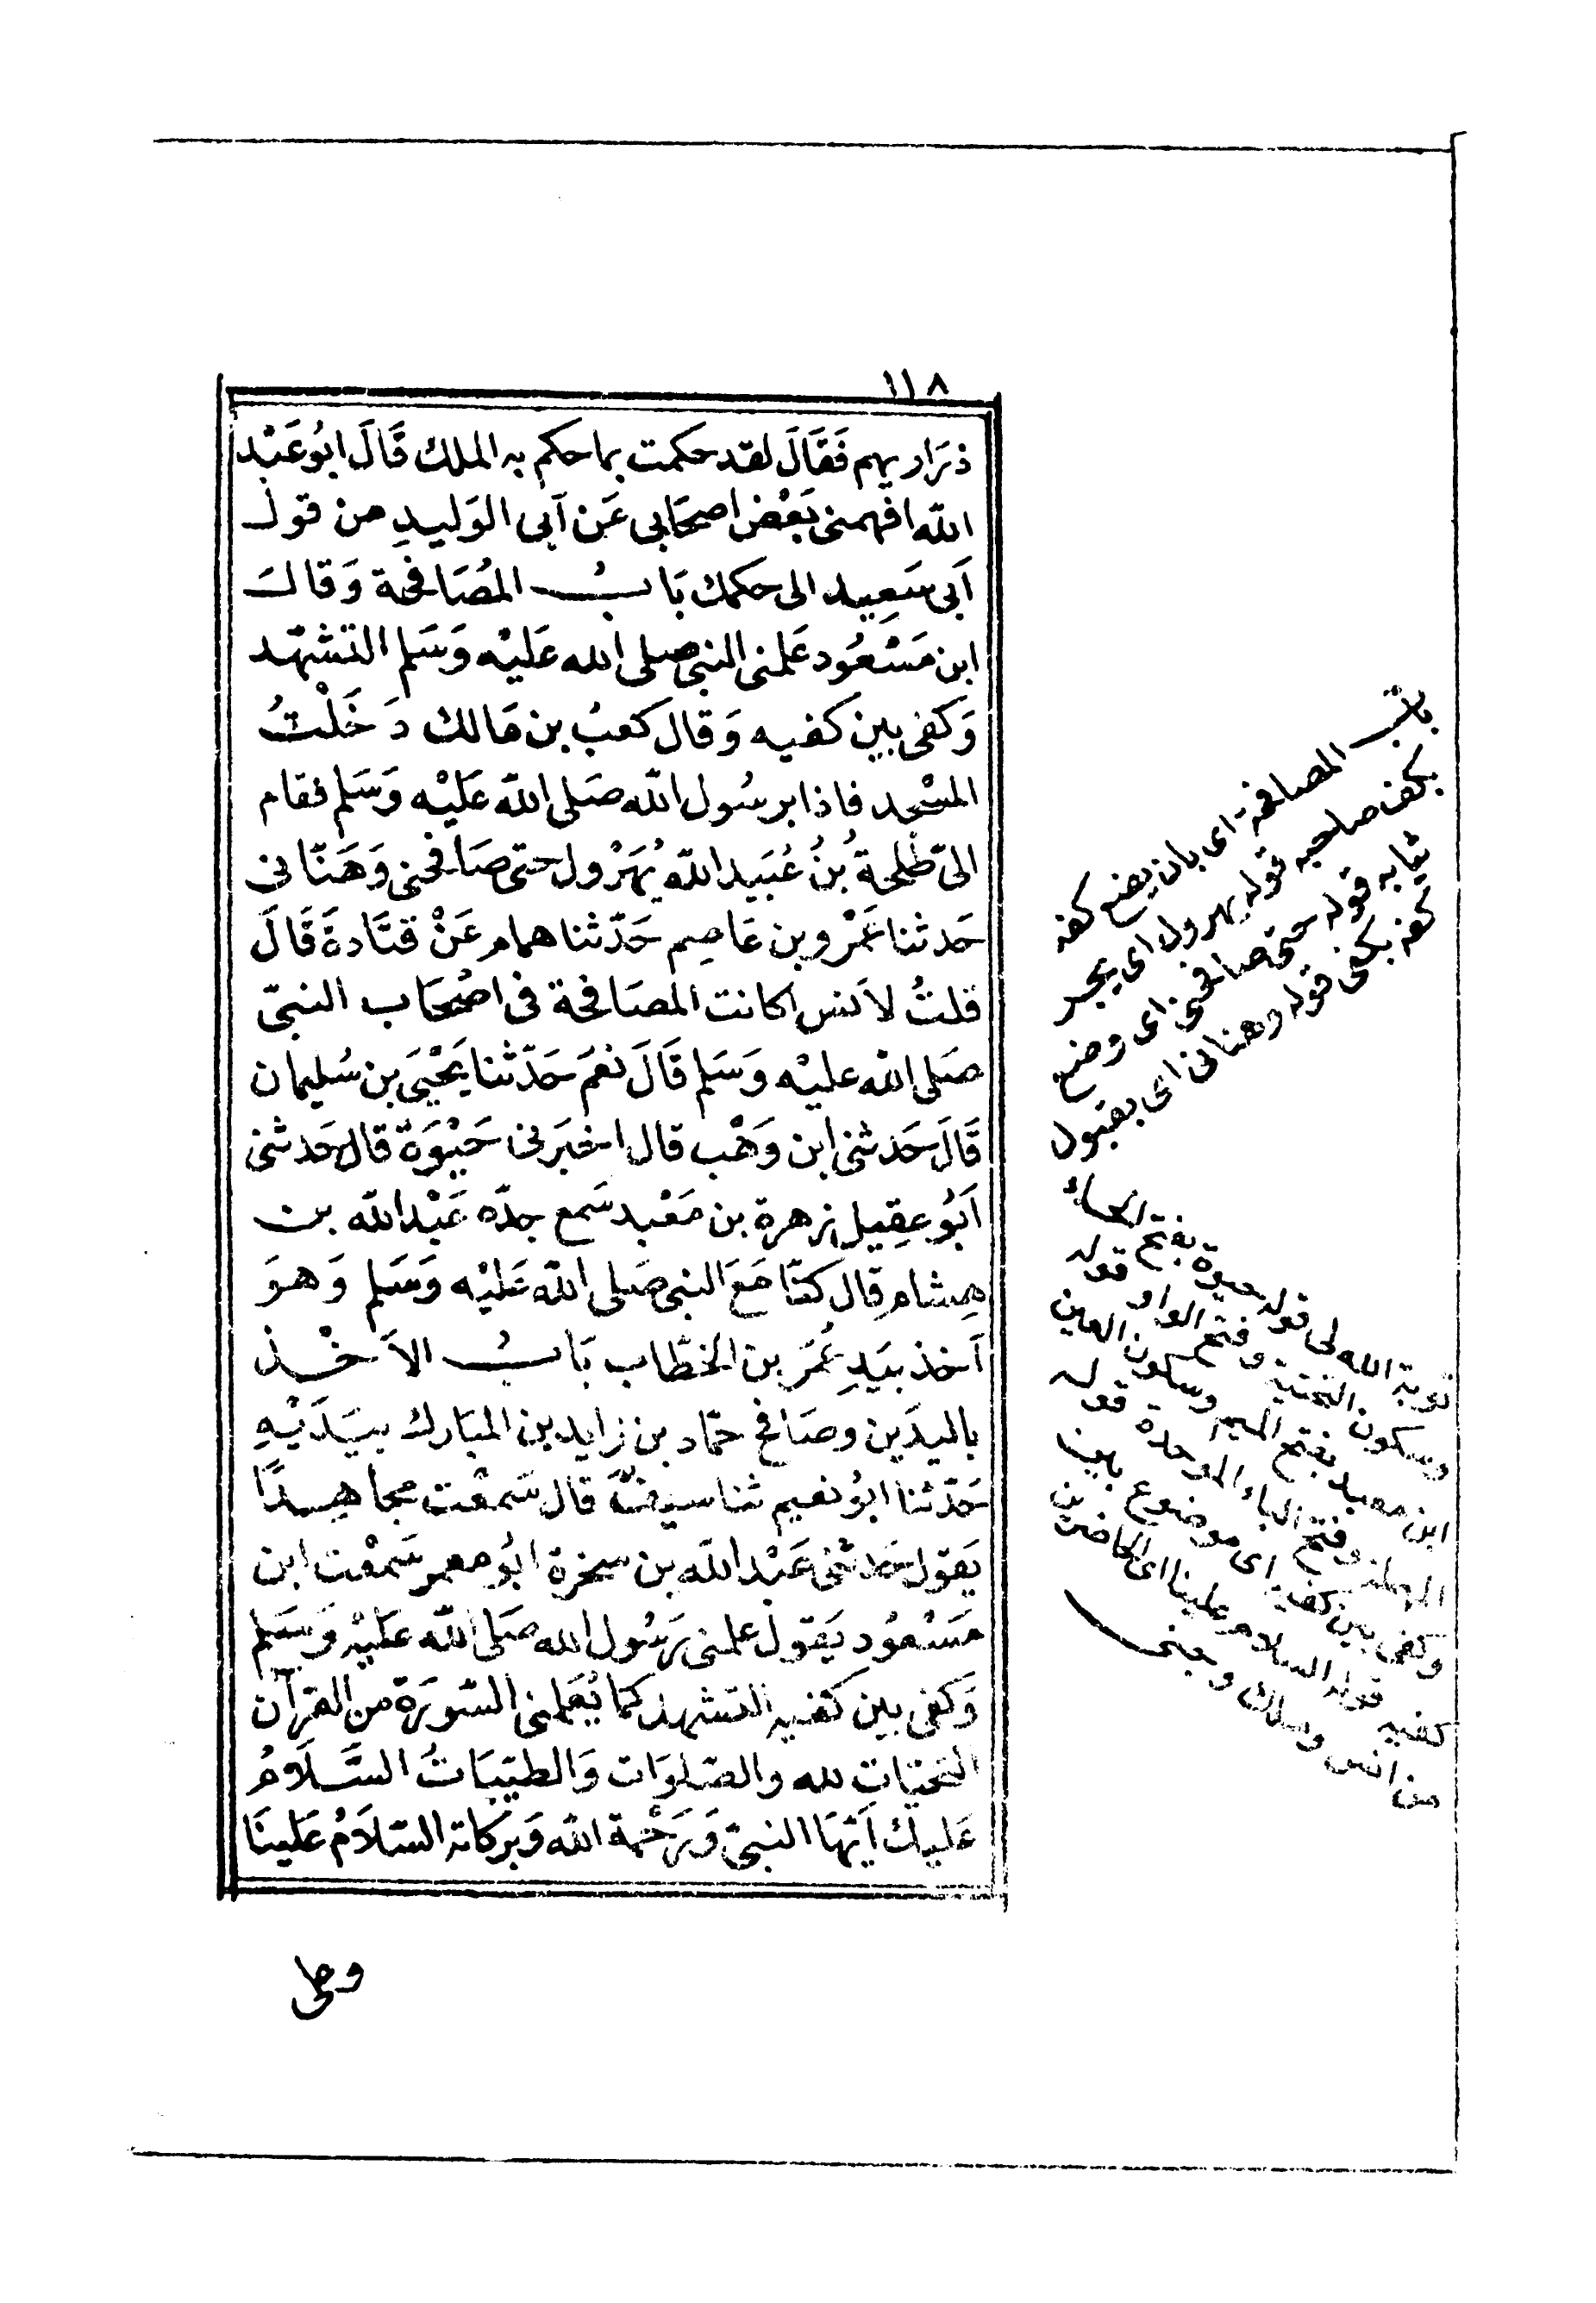 ١١٨
ذرَاريهم فَقَالَ لقد حكمت بما حكم به الملك قَالَ ابُو عَبْد
الله افهمنى بَعْض اصحَابى عَن اَبى الوَليدِ من قول
اَبى سَعِيد الى حكمك بَابُ المُصَافحة وَقالَ
ابن مَسْعُود عَلمنى النبى صلى الله عَليْه وَسَلم التشهّد
وَكفى بين كفيه وَقال كعبُ بن مَالك دَخَلْتُ
المسْجد فاذا برسُول الله صَلى الله عَليْه وَسَلم فقام
الىّ طلحةُ بنُ عُبَيد الله يُهَرْول حتى صَافحنى وَهَنّانى
حَدثنا عَمْرو بن عَاصِم حَدّثنا همام عَنْ قتَادةَ قَالَ
قلتُ لاَنس اكانت المصَافحة فى اصْحَاب النبىّ
صَلى الله عليْه وَسَلم قَالَ نعَم حَدّثنا يَحْيَى بن سُليمان
قَالَ حَدثنى ابن وَهْب قال اخبَرنى حَيْوَة قال حَدثنى
اَبُو عقِيل زهرة بن مَعْبد سَمع جدّه عَبْد الله بن
هِشام قال كنّا مَعَ النبى صَلى الله عَليْه وَسَلم وَهوَ
آخذ بيَدِ عُمَر بن الخطّاب بَابُ الاَخْذ
باليدَين وصَافح حمّاد بن زايد بن المبَارك بيَدَيْهِ
حَدّثنا ابوُ نعيم ثنا سيفٌ قال سَمعْت مجاهِدًا
يَقول حَدثنى عَبْد الله بن سخبرة ابُو معمر سَمعْت ابن
مَسْعُود يَقول علمنى رَسُول الله صَلى الله عَليْه وَسَلم
وَكفى بين كفيه التشهد كمَا يُعَلمنى السّورَة من القرآن
التحيّات لله والصّلوَات وَالطيّبَاتُ السَّلاَمُ
عَليك اَيّهَا النبىّ وَرَحْمة الله وَبركاته السّلاَمُ عَلينَا
وعلى
باب المصافحة اى بان يضع كفه
بكف صاحبه قوله يهرول اى يجر
ثيابه قوله حتى صافحنى اى وضع
كفه بكفى قوله وهنانى اى بقبول
توبة الله لى قوله حيوة بفتح الحاء
وسكون التحتية وفتح الواو قوله
ابن معبد بفتح الميم وسكون العين
المهملة وفتح الباء الموحدة قوله
وكفى بين كفيه اى موضوع بين
كفيه قوله السلام علينا اى الحاضرين
من انس وملك وجن